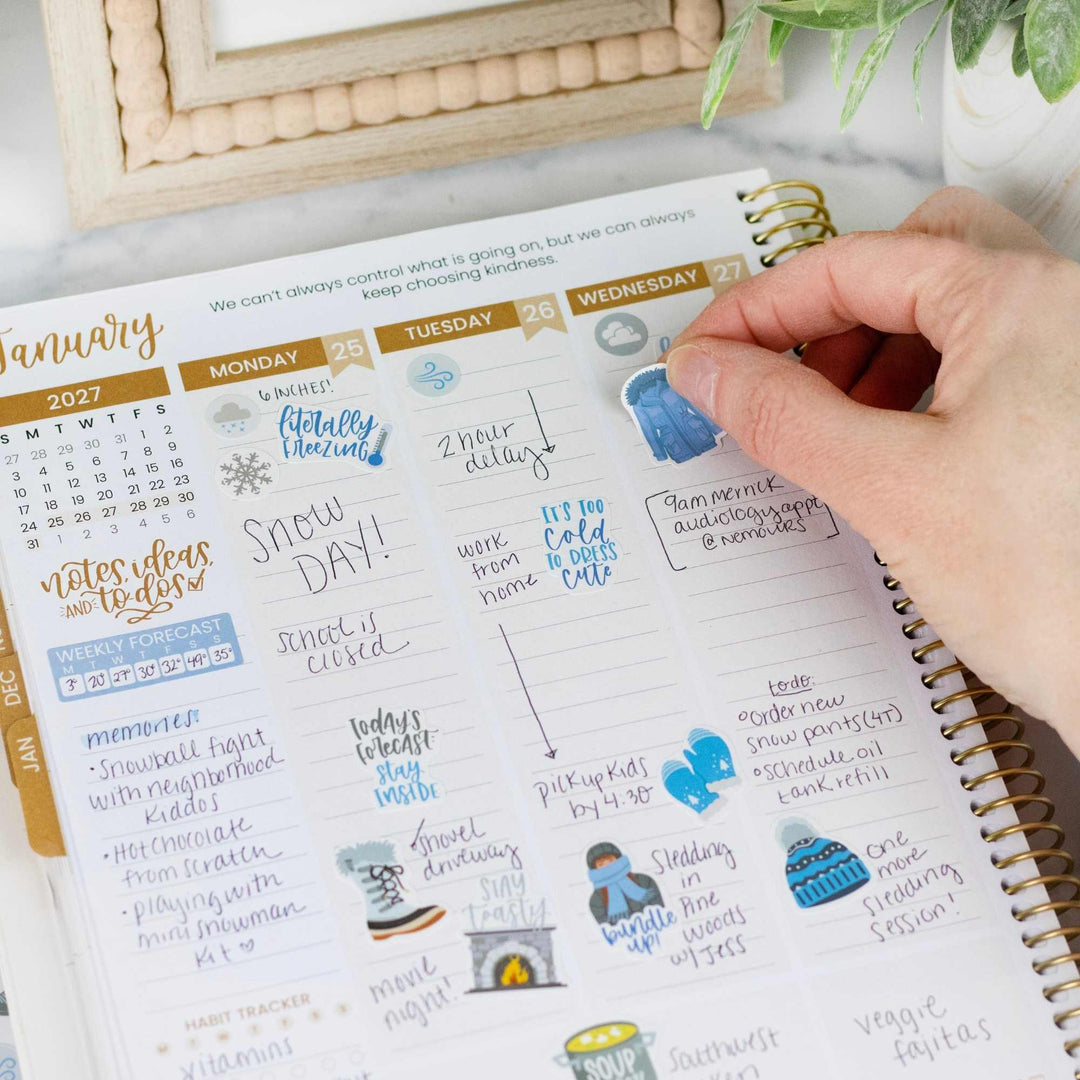 We can't always control what is going on, but we can always
keep choosing kindness.
January
2027
S M T W T F S
27 28 29 30 31 1 2
3 4 5 6 7 8 9
10 11 12 13 14 15 16
17 18 19 20 21 22 23
24 25 26 27 28 29 30
31 1 2 3 4 5 6
notes, ideas,
AND to dos
WEEKLY FORECAST
M T W T F S S
3° 20° 27° 30° 32° 49° 35°
memories:
• Snowball fight
with neighborhood
kiddos
• Hot Chocolate
from scratch
• playing with
mini snowman
kit
HABIT TRACKER
vitamins
DEC
JAN
MONDAY 25
6 INCHES!
literally
FREEZING
SNOW
DAY!
school is
closed
TODAY'S
FORECAST
STAY
INSIDE
shovel
driveway
STAY
toasty
movie
night!
TUESDAY 26
2 hour
delay
work
from
home
IT'S TOO
Cold
TO DRESS
CUTE
pick up kids
by 4:30
bundle
up!
Sledding
in
Pine
Woods
w/ Jess
SOUP
Southwest
WEDNESDAY 27
9am Merrick
audiology appt
@ Nemours
todo:
order new
snow pants (4T)
schedule oil
tank refill
one
more
sledding
session!
veggie
fajitas